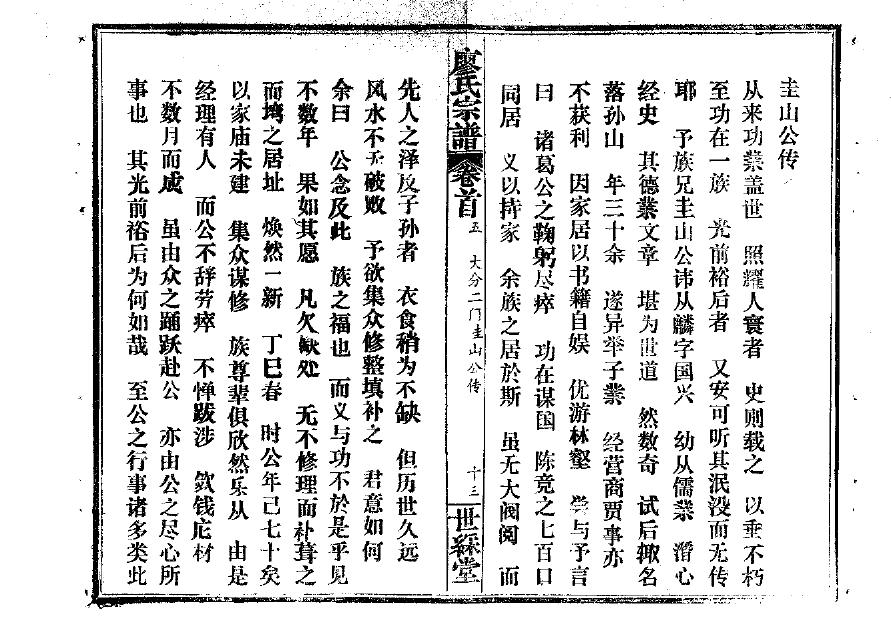 圭山公传
从来功業盖世 照耀人寰者 史则载之 以垂不朽
至功在一族 光前裕后者 又安可听其泯没而无传
耶 予族兄圭山公讳从麟字国兴 幼从儒業 潛心
经史 其德業文章 堪为世道 然数奇 试后辙名
落孙山 年三十余 遂异举子業 经营商贾事亦
不获利 因家居以书籍自娱 优游林壑 尝与予言
曰 诸葛公之鞠躬尽瘁 功在谋国 陈竞之七百口
同居 义以持家 余族之居於斯 虽无大阀阅 而
廖氏宗譜 卷首 五 大分二门圭山公传 十三 世綵堂
先人之泽及子孙者 衣食稍为不缺 但历世久远
风水不无破败 予欲集众修整填补之 君意如何
余曰 公念及此 族之福也 而义与功不於是乎见
不数年 果如其愿 凡欠缺处 无不修理而补葺之
而塆之居址 焕然一新 丁巳春 时公年已七十矣
以家庙未建 集众谋修 族尊辈俱欣然乐从 由是
经理有人 而公不辞劳瘁 不惮跋涉 敛钱庀材
不数月而成 虽由众之踊跃赴公 亦由公之尽心所
事也 其光前裕后为何如哉 至公之行事诸多类此